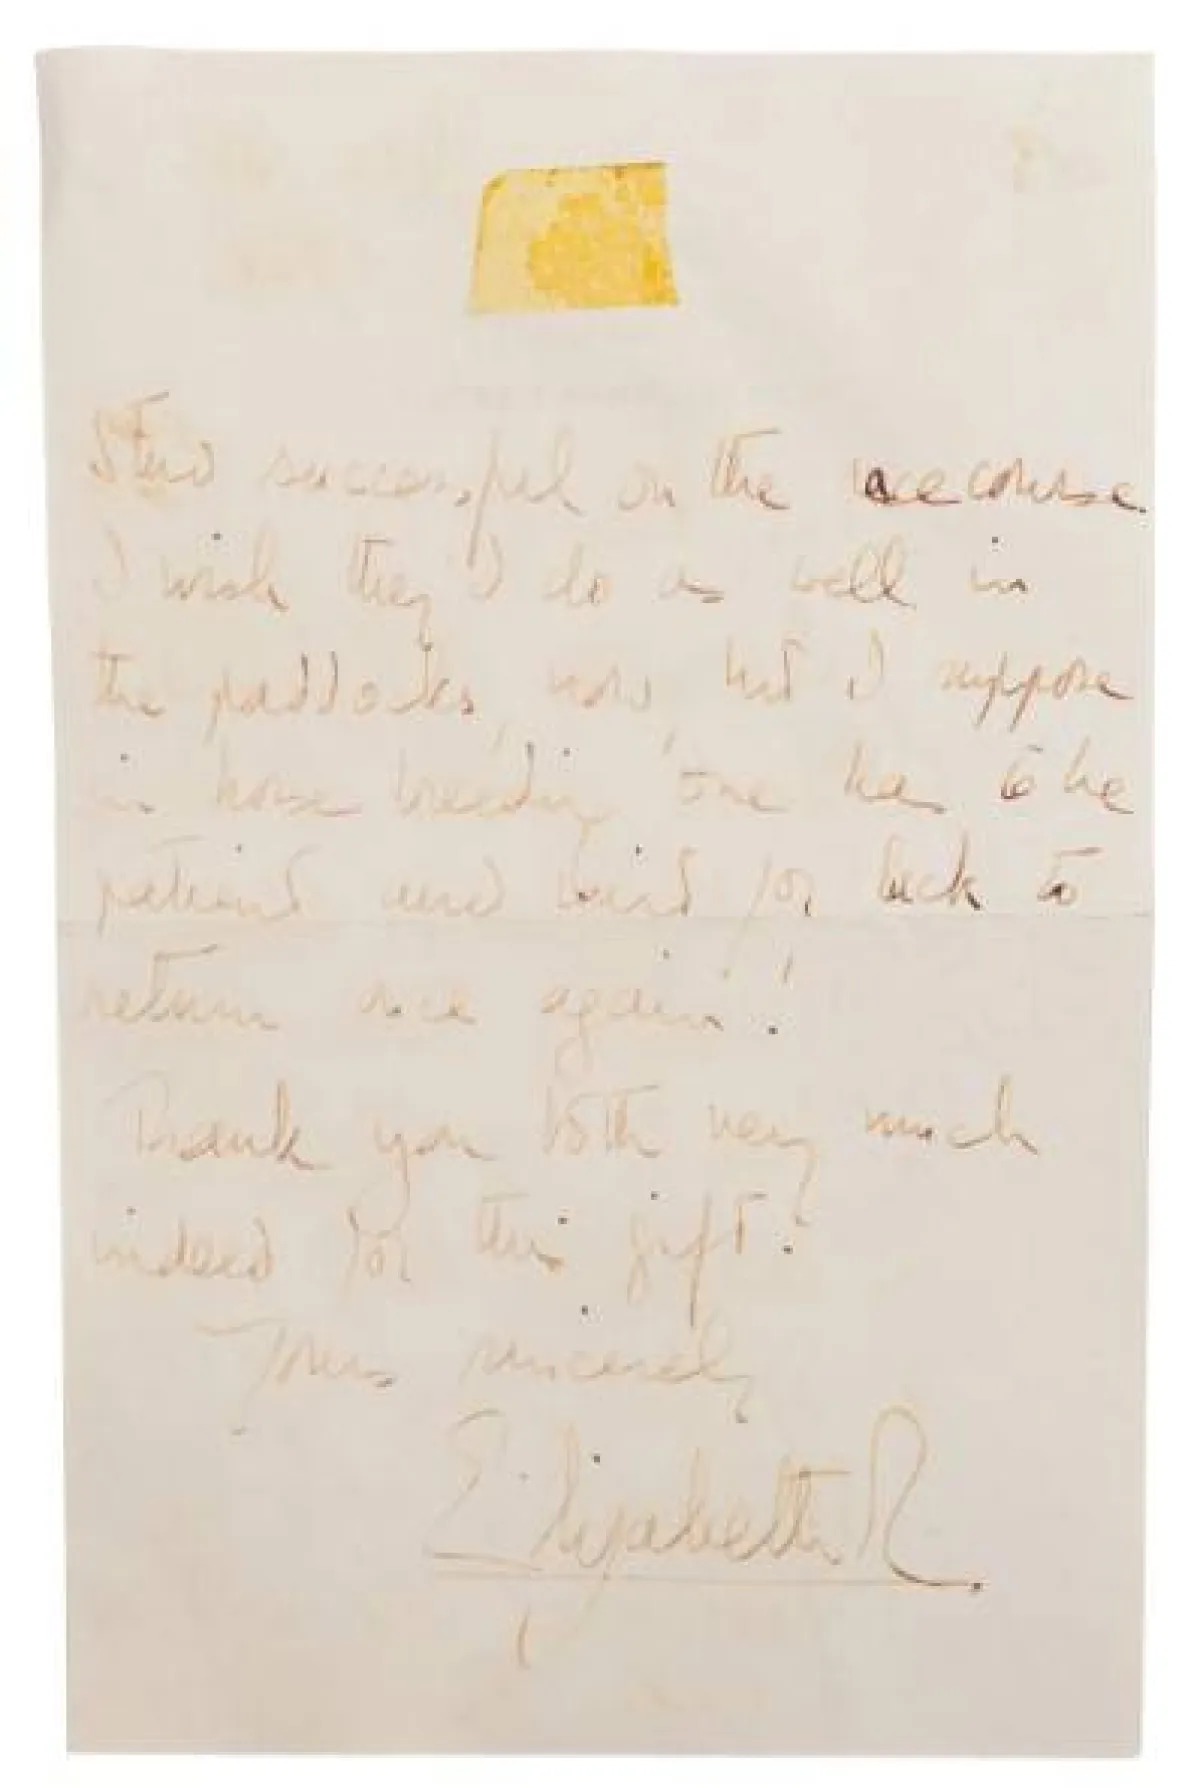 Stud successful on the racecourse.
I wish they'd do as well in
the paddocks, now, but I suppose
in horse breeding one has to be
patient and wait for luck to
return once again!
Thank you both very much
indeed for this gift.
Yours sincerely
Elizabeth R.